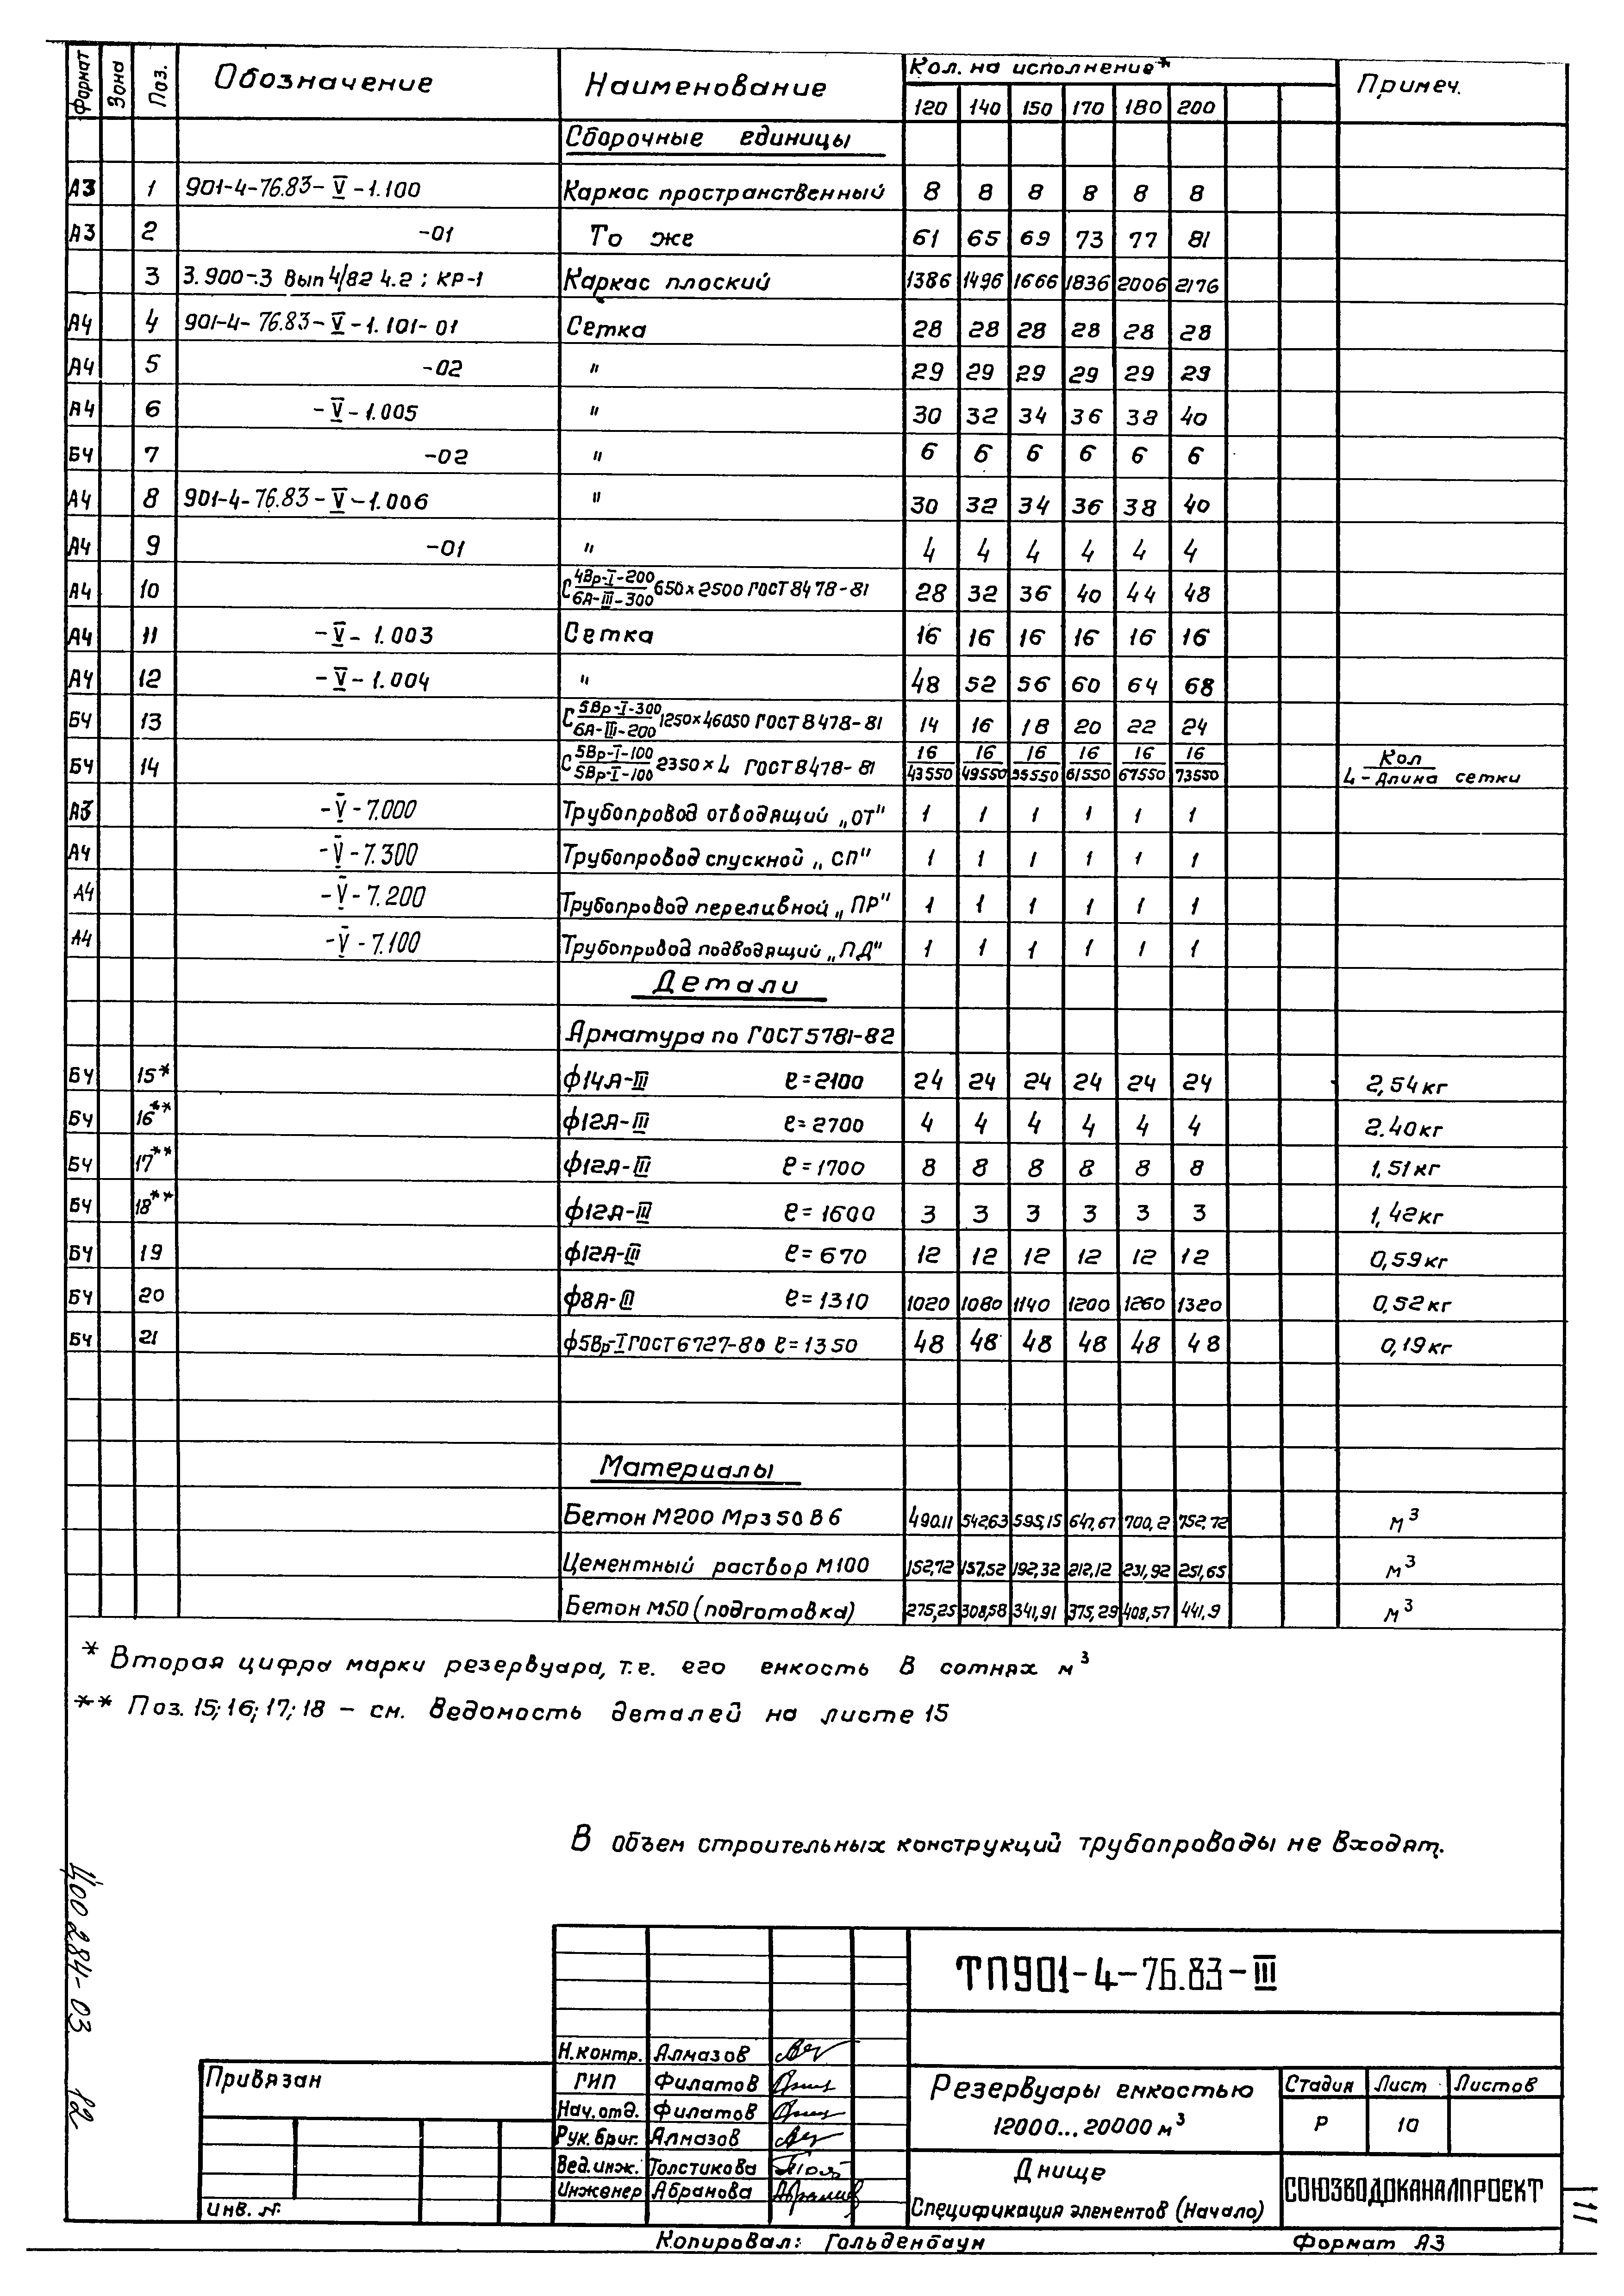 Формат Зона Поз. Обозначение Наименование Кол. на исполнение* Примеч.
120 140 150 170 180 200
Сборочные единицы
А3 1 901-4-76.83-V-1.100 Каркас пространственный 8 8 8 8 8 8
А3 2 -01 То же 61 65 69 73 77 81
3 3.900-3 Вып 4/82 4.2; КР-1 Каркас плоский 1386 1496 1666 1836 2006 2176
А4 4 901-4-76.83-V-1.101-01 Сетка 28 28 28 28 28 28
А4 5 -02 " 29 29 29 29 29 29
А4 6 -V-1.005 " 30 32 34 36 38 40
БЧ 7 -02 " 6 6 6 6 6 6
А4 8 901-4-76.83-V-1.006 " 30 32 34 36 38 40
А4 9 -01 " 4 4 4 4 4 4
А4 10 С 4Вр-I-200/6А-III-300 650×2500 ГОСТ 8478-81 28 32 36 40 44 48
А4 11 -V-1.003 Сетка 16 16 16 16 16 16
А4 12 -V-1.004 " 48 52 56 60 64 68
БЧ 13 С 5Вр-I-300/6А-III-200 1250×46050 ГОСТ 8478-81 14 16 18 20 22 24
БЧ 14 С 5Вр-I-100/5Вр-I-100 2350×L ГОСТ 8478-81 16/43550 16/49550 16/55550 16/61550 16/67550 16/73550 Кол/L-длина сетки
А3 -V-7.000 Трубопровод отводящий „ОТ" 1 1 1 1 1 1
А4 -V-7.300 Трубопровод спускной „СП" 1 1 1 1 1 1
А4 -V-7.200 Трубопровод переливной „ПР" 1 1 1 1 1 1
А4 -V-7.100 Трубопровод подводящий „ПД" 1 1 1 1 1 1
Детали
Арматура по ГОСТ 5781-82
БЧ 15* ф14А-III ℓ=2100 24 24 24 24 24 24 2,54кг
БЧ 16** ф12А-III ℓ=2700 4 4 4 4 4 4 2.40кг
БЧ 17** ф12А-III ℓ=1700 8 8 8 8 8 8 1,51кг
БЧ 18** ф12А-III ℓ=1600 3 3 3 3 3 3 1,42кг
БЧ 19 ф12А-III ℓ=670 12 12 12 12 12 12 0,59кг
БЧ 20 ф8А-III ℓ=1310 1020 1080 1140 1200 1260 1320 0,52кг
БЧ 21 ф5Вр-I ГОСТ 6727-80 ℓ=1350 48 48 48 48 48 48 0,19кг
Материалы
Бетон М200 Мрз 50 В6 490.11 542.63 595,15 647,67 700,2 752,72 м³
Цементный раствор М100 152,72 157,52 192,32 212,12 231,92 251,65 м³
Бетон М50 (подготовка) 275,25 308,58 341,91 375,29 408,57 441,9 м³
* Вторая цифра марки резервуара, т.е. его емкость в сотнях м³
** Поз. 15; 16; 17; 18 – см. Ведомость деталей на листе 15
В объем строительных конструкций трубопроводы не входят.
Ц00284-03 12
ТП901-4-76.83-III
Н.контр. Алмазов
ГИП Филатов
Нач.отд. Филатов
Рук.бриг. Алмазов
Вед.инж. Толстикова
Инженер Абрамова
Привязан
Инв. №
Резервуары емкостью
12000...20000 м³
Стадия Лист Листов
Р 10
Днище
Спецификация элементов (Начало)
СОЮЗВОДОКАНАЛПРОЕКТ
11
Копировал: Гольденбаум Формат А3